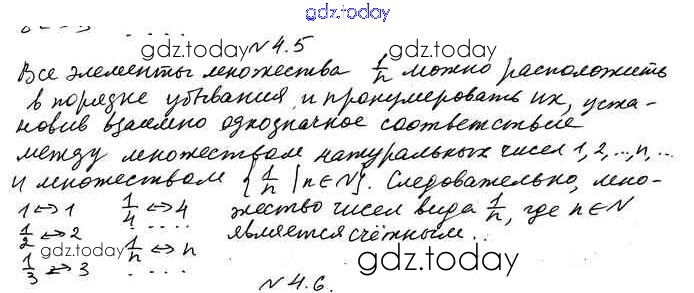 gdz.today
gdz.today № 4.5 gdz.today
Все элементы множества 1/n можно расположить
в порядке убывания и пронумеровать их, уста-
новив взаимно однозначное соответствие
между множеством натуральных чисел 1, 2, ..., n, ...
и множеством {1/n | n ∈ N}. Следовательно, мно-
1 ↔ 1 1/4 ↔ 4 жество чисел вида 1/n, где n ∈ N
1/2 ↔ 2 . . . . является счётным.
gdz.today 1/n ↔ n
1/3 ↔ 3 . . . . gdz.today
№ 4.6.